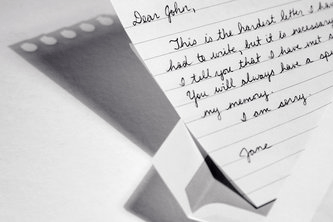 Dear John,
This is the hardest letter I
had to write, but it is necessary
I tell you that I have met
You will always have a
my memory.
I am sorry.
Jane